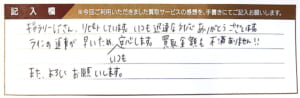 記入欄
※今回ご利用いただきました買取サービスの感想を、手書きにてご記入お願いします。
ギャラリーしださん、リピートしています。いつも迅速な対応ありがとうございます
ラインの返事が早いため、安心します。買取金額も不満ありません!!
いつも
また、よろしくお願いします。